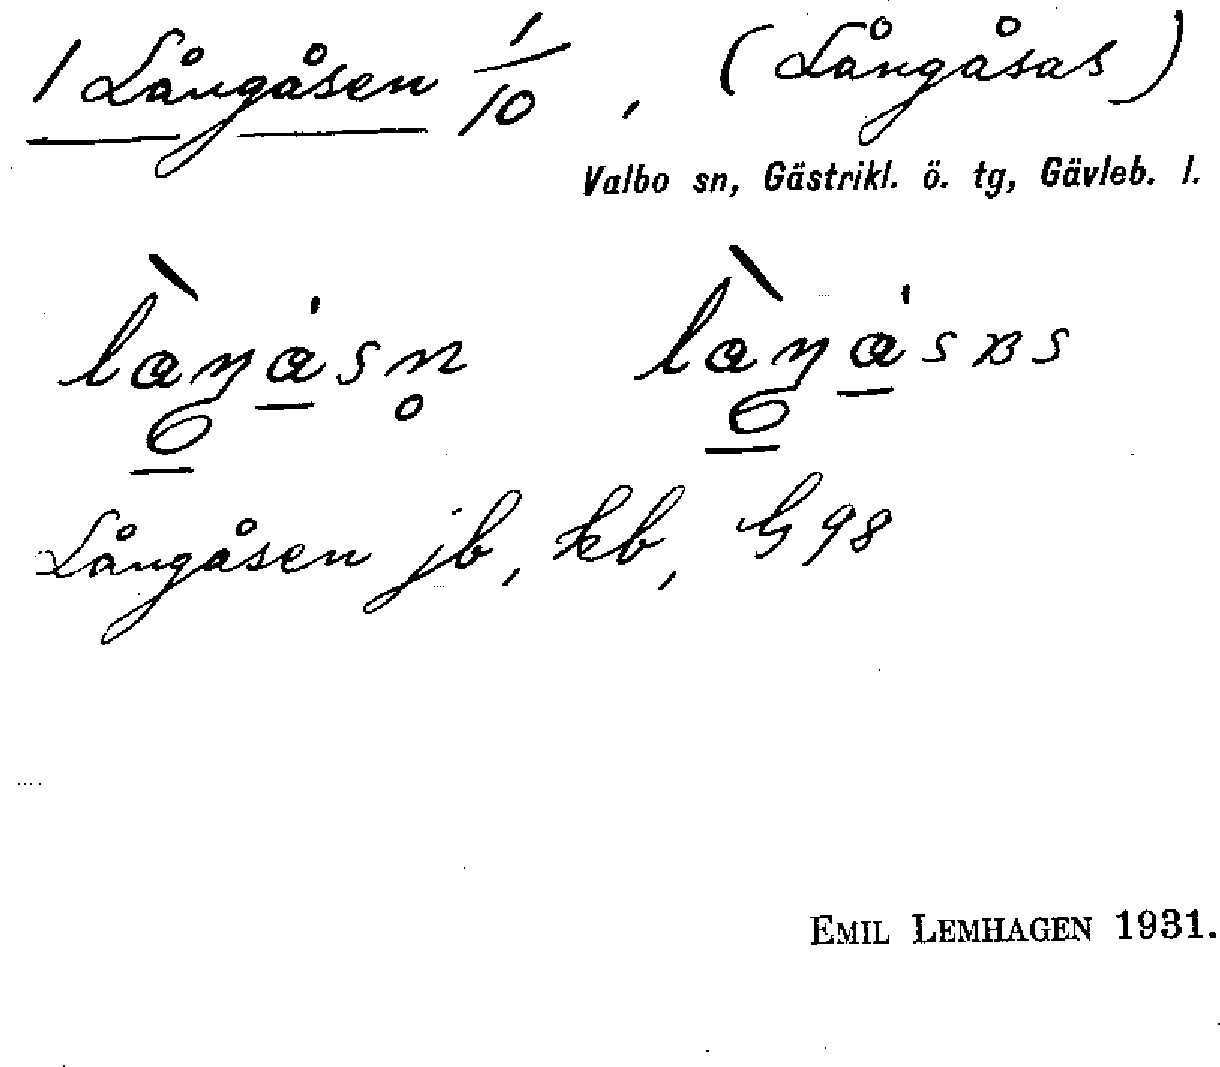 1 Långåsen 1/10, (Långåsas)
Valbo sn, Gästrikl. ö. tg, Gävleb. l.
Långåsen jb, kb, G 98
EMIL LEMHAGEN 1931.